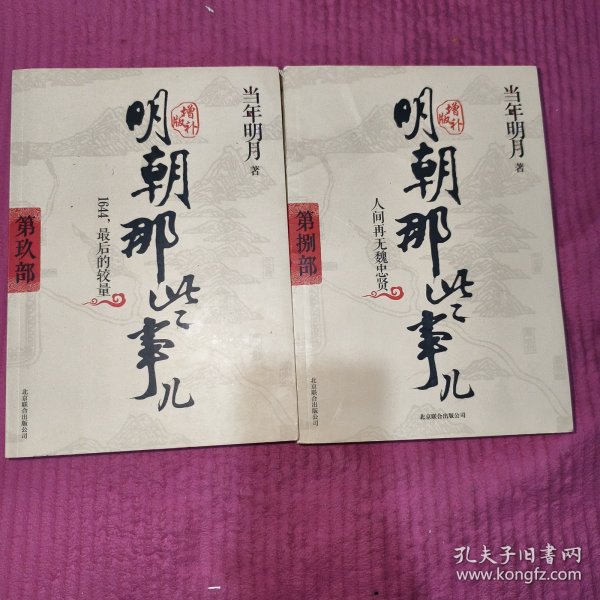 当年明月 著
增补版
明朝那些事儿
1644，最后的较量
第玖部
北京联合出版公司
当年明月 著
增补版
明朝那些事儿
人间再无魏忠贤
第捌部
北京联合出版公司
北京联合出版公司
孔夫子旧书网
www.kongfz.com